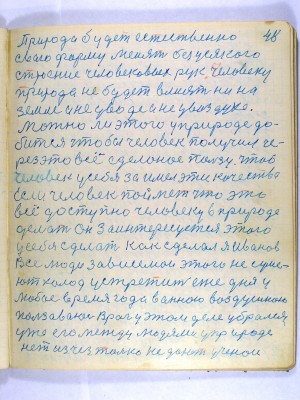 48
Природа будет естественно
свою форму менят без усякого
стриение человековых рук. человеку
природа не будет влиять ни на
земле и не у воде и не у воздухе.
Можно ли этого у природе до-
бится чтобы человек получил че-
рез это всё сделоное ползу. чтоб
человек у себя заимел эти качества
Если человек поймет что это
всё доступно человеку в природе
делат он заинтересуется этого
у себя сделат как сделал я Иванов
Все люди зависемои этого не суще-
ют холод устретит ене дня у
любое время года банною воздушною
ползавани Враг у этом деле убрался
уже его между людями у природе
нет изчез толко не дают ученои